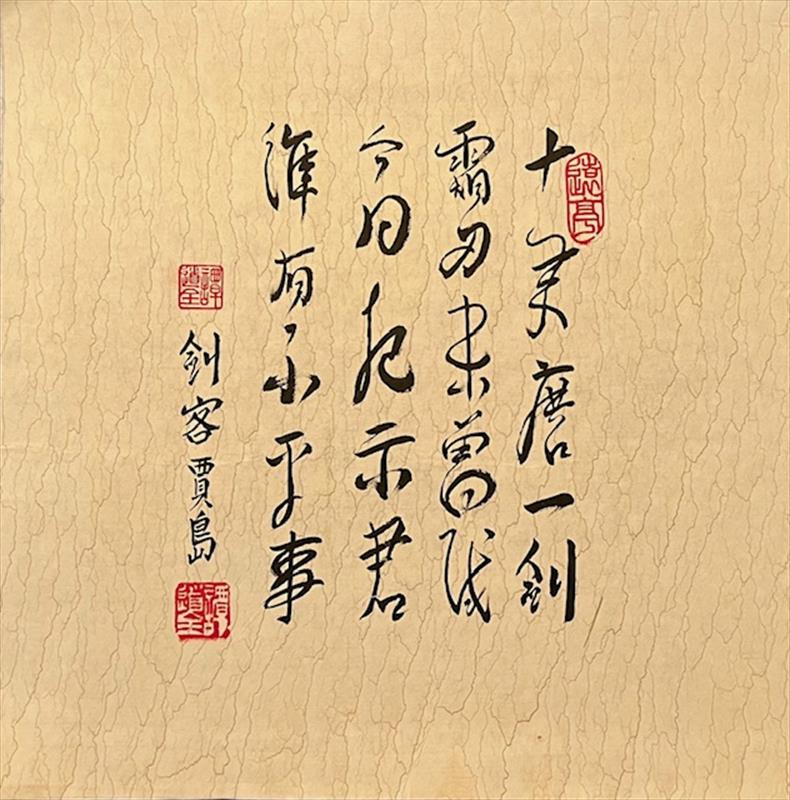 十年磨一劍
霜刃未曾試
今日把示君
誰有不平事
劍客 賈島